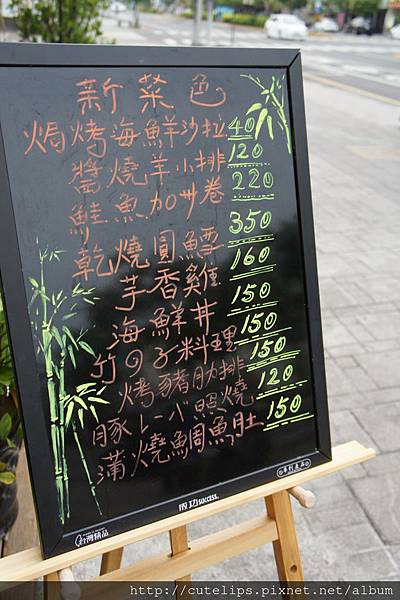 新菜色
焗烤海鮮沙拉 40
醬燒羊小排 120
鮭魚加州卷 220
乾燒圓鱈 350
芋香雞 160
海鮮丼 150
竹の子料理 150
烤豬肋排 150
豚レー小照燒 120
蒲燒鯛魚肚 150
成功 success.
http://cutelips.pixnet.net/album